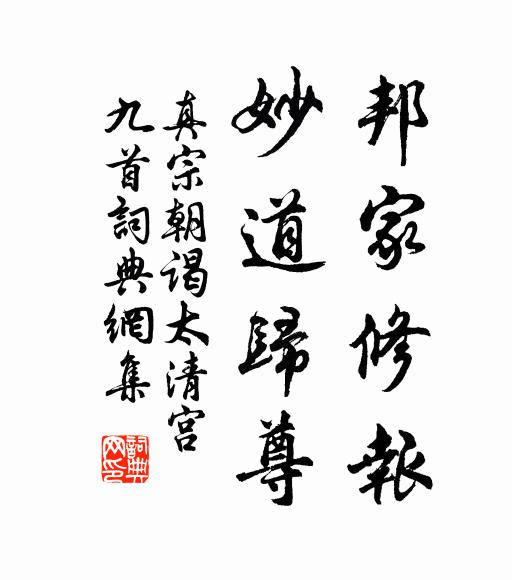 邦家修報
妙道歸尊
真宗朝謁太清宮
九首詞典網集
詞典
网印